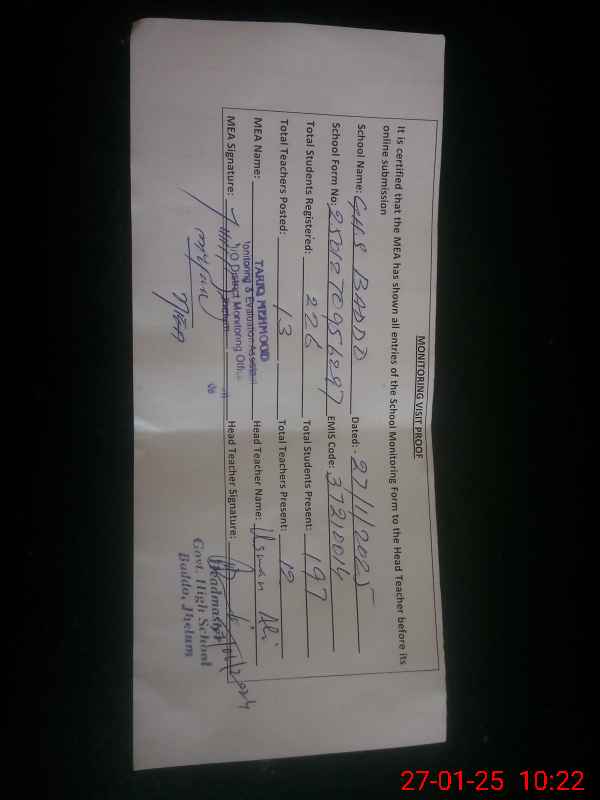 MONITORING VISIT PROOF
It is certified that the MEA has shown all entries of the School Monitoring Form to the Head Teacher before its
online submission
School Name: GHS BADDO Dated:- 27/1/2025
School Form No: EMIS Code: 37210014
Total Students Registered: 226 Total Students Present: 197
Total Teachers Posted: 13 Total Teachers Present: 12
MEA Name: TARIQ MEHMOOD Head Teacher Name: Usman Ali
Monitoring & Evaluation Assistant
O/O District Monitoring Office
Jhelum
MEA Signature: Head Teacher Signature:
MEA
Headmaster
Govt. High School
Baddo, Jhelum
27-01-25 10:22